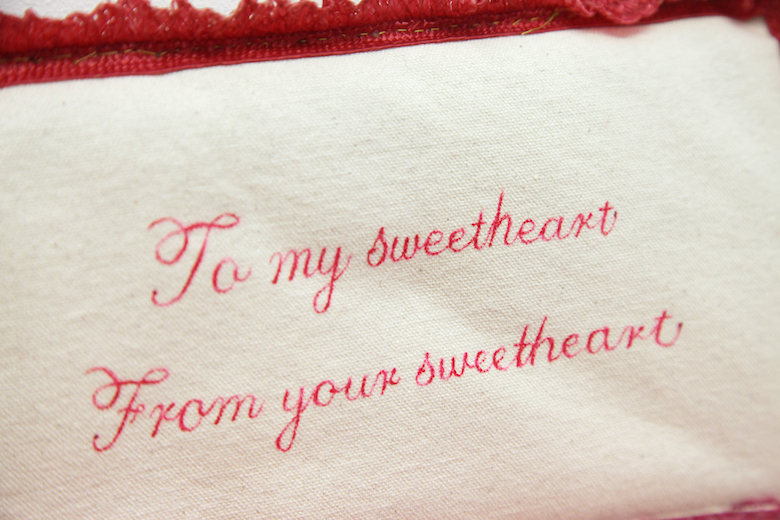 To my sweetheart
From your sweetheart